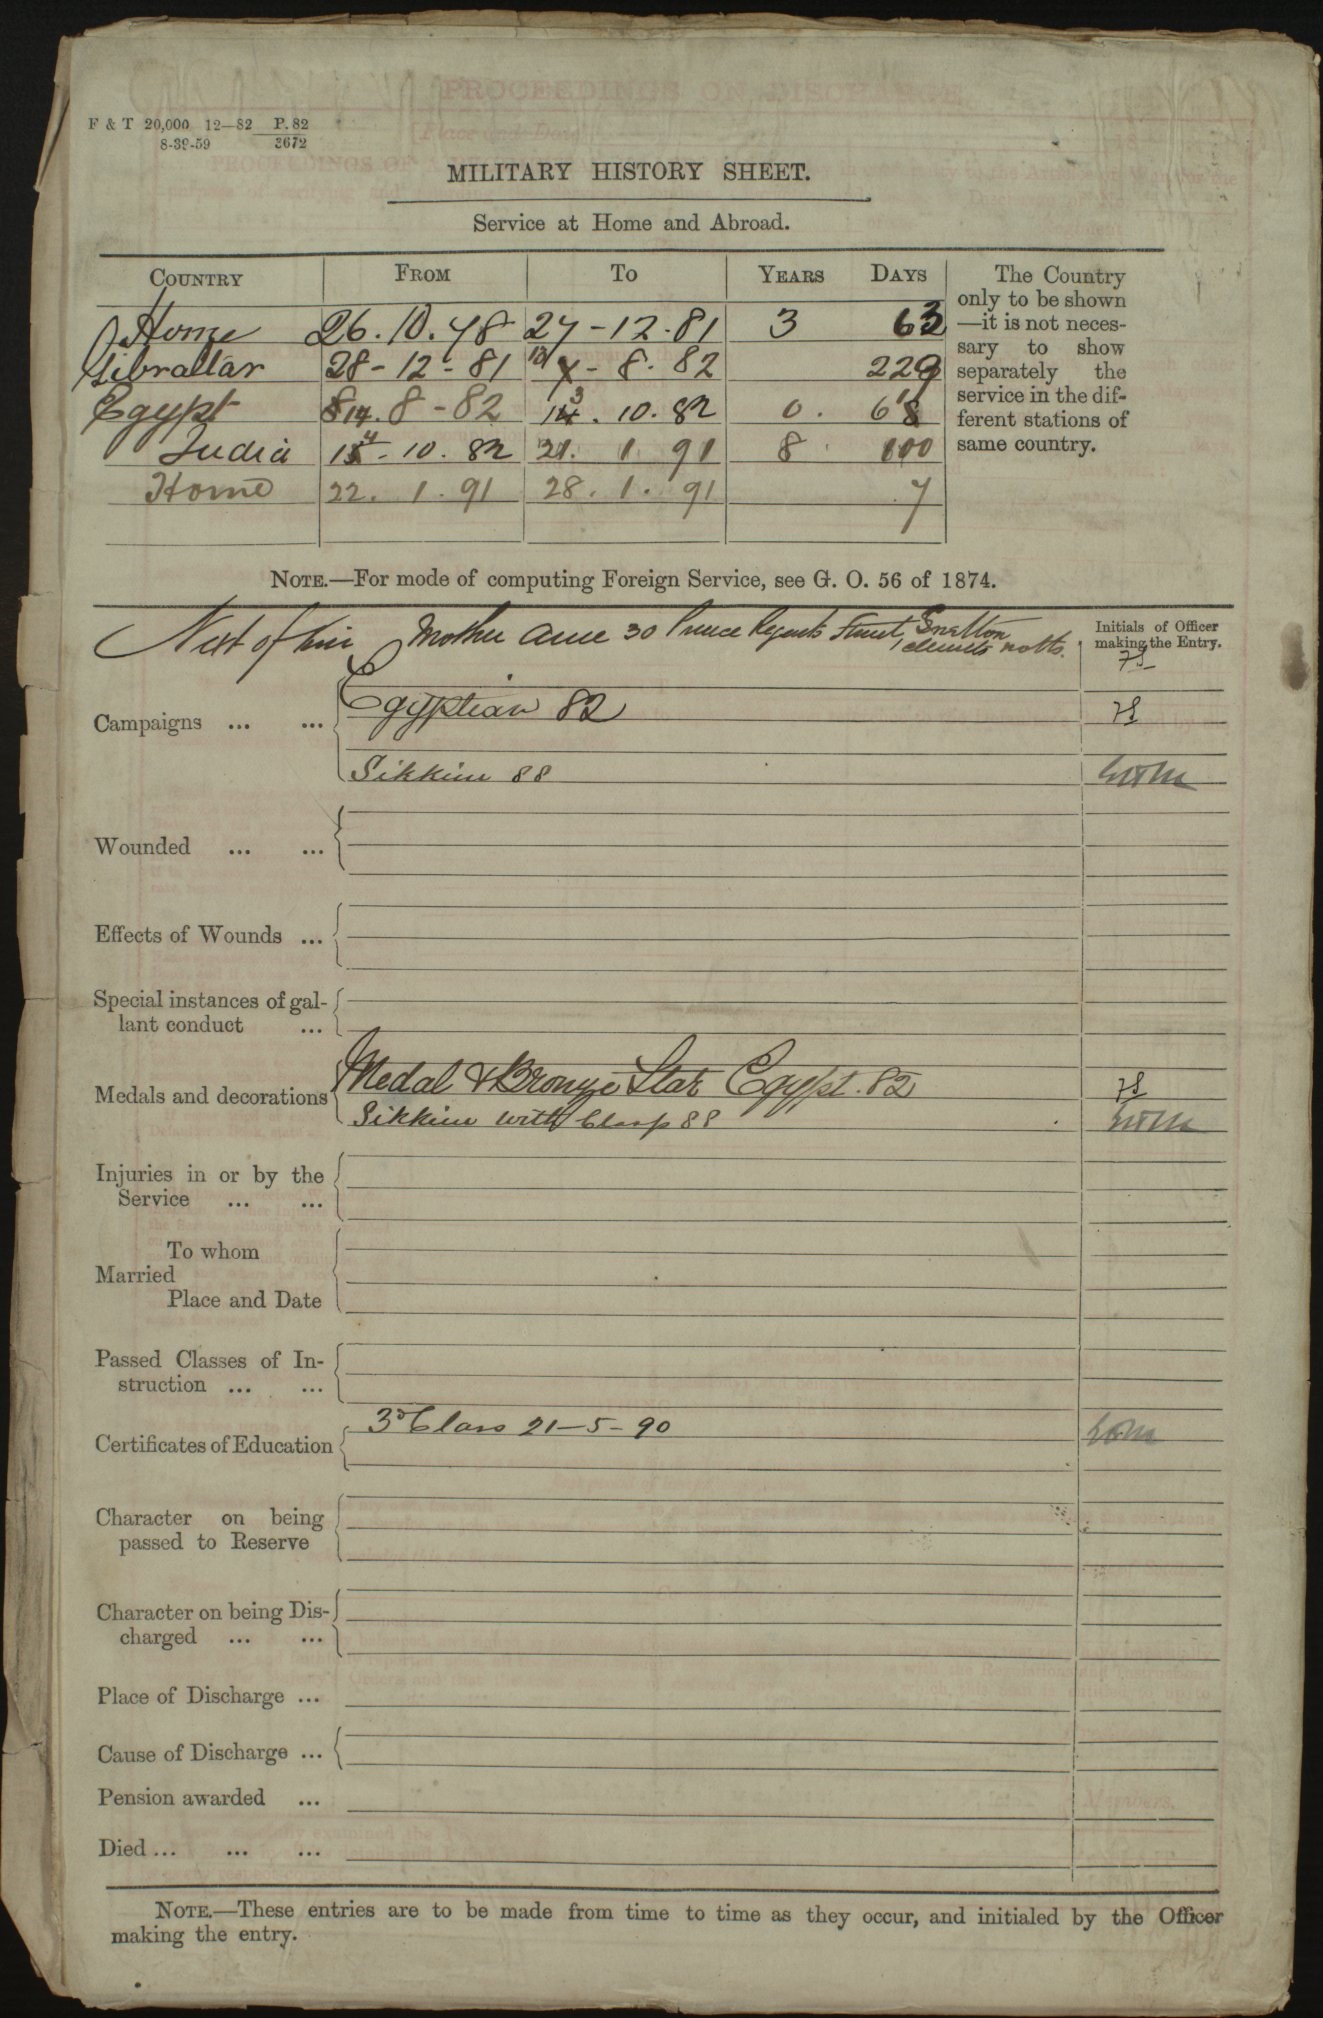 F & T 20,000 12—82 P. 82
8-39-59 3672
MILITARY HISTORY SHEET.
Service at Home and Abroad.
COUNTRY FROM TO YEARS DAYS
The Country
only to be shown
—it is not neces-
sary to show
separately the
service in the dif-
ferent stations of
same country.
Home 26. 10. 78 27 - 12. 81 3 63
Gibraltar 28 - 12 - 81 13 - 8. 82 229
Egypt 14. 8 - 82 13. 10. 82 0. 61
India 14. 10. 82 21. 1 91 8 100
Home 22. 1. 91 28. 1. 91 7
NOTE.—For mode of computing Foreign Service, see G. O. 56 of 1874.
Initials of Officer
making the Entry.
Next of kin Mother Anne 30 Prince Regents Street, Snelton
notts.
Campaigns ... ...
Egyptian 82
Sikkim 88
Wounded ... ...
Effects of Wounds ...
Special instances of gal-
lant conduct ...
Medals and decorations
Medal & Bronze Star Egypt. 82
Sikkim with Clasp 88
Injuries in or by the
Service ... ...
To whom
Married
Place and Date
Passed Classes of In-
struction ... ...
Certificates of Education
3d Class 21-5-90
Character on being
passed to Reserve
Character on being Dis-
charged ... ...
Place of Discharge ...
Cause of Discharge ...
Pension awarded ...
Died ... ... ...
NOTE.—These entries are to be made from time to time as they occur, and initialed by the Officer
making the entry.